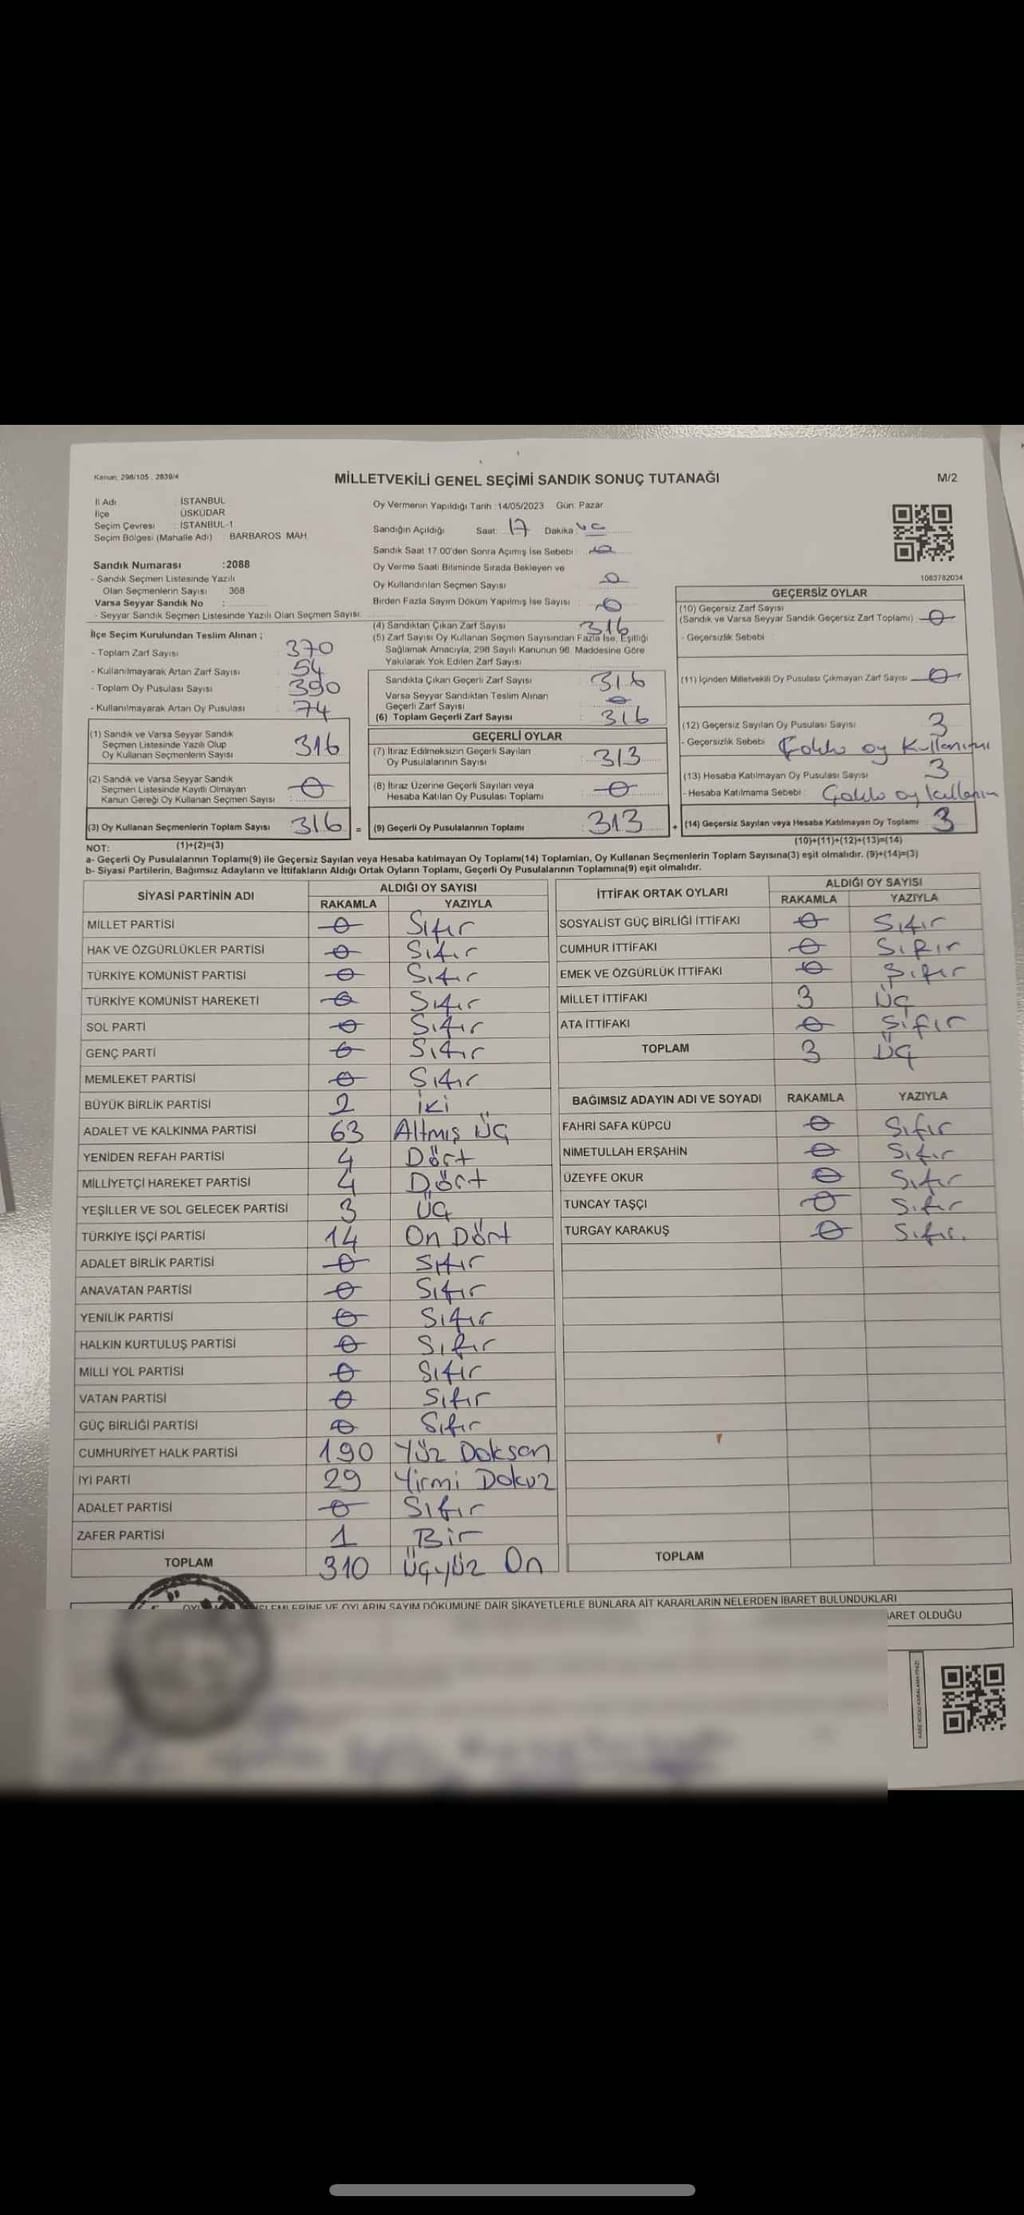 Kanun: 298/105, 2839/4
MİLLETVEKİLİ GENEL SEÇİMİ SANDIK SONUÇ TUTANAĞI
M/2
İl Adı İSTANBUL
İlçe ÜSKÜDAR
Seçim Çevresi : İSTANBUL-1
Seçim Bölgesi (Mahalle Adı) BARBAROS MAH.
Oy Vermenin Yapıldığı Tarih :14/05/2023 Gün: Pazar
Sandığın Açıldığı Saat: 17 Dakika
Sandık Saat 17.00'den Sonra Açımış İse Sebebi
Oy Verme Saati Bitiminde Sırada Bekleyen ve
Oy Kullandırılan Seçmen Sayısı 0
Birden Fazla Sayım Döküm Yapılmış İse Sayısı 0
1083782034
Sandık Numarası :2088
- Sandık Seçmen Listesinde Yazılı
Olan Seçmenlerin Sayısı 368
Varsa Seyyar Sandık No :
- Seyyar Sandık Seçmen Listesinde Yazılı Olan Seçmen Sayısı:
İlçe Seçim Kurulundan Teslim Alınan ;
- Toplam Zarf Sayısı 370
- Kullanılmayarak Artan Zarf Sayısı 54
- Toplam Oy Pusulası Sayısı 390
- Kullanılmayarak Artan Oy Pusulası 74
(1) Sandık ve Varsa Seyyar Sandık
Seçmen Listesinde Yazılı Olup
Oy Kullanan Seçmenlerin Sayısı 316
(2) Sandık ve Varsa Seyyar Sandık
Seçmen Listesinde Kayıtlı Olmayan
Kanun Gereği Oy Kullanan Seçmen Sayısı 0
(3) Oy Kullanan Seçmenlerin Toplam Sayısı 316 =
(1)+(2)=(3)
(4) Sandıktan Çıkan Zarf Sayısı 316
(5) Zarf Sayısı Oy Kullanan Seçmen Sayısından Fazla İse, Eşitliği
Sağlamak Amacıyla, 298 Sayılı Kanunun 98. Maddesine Göre
Yakılarak Yok Edilen Zarf Sayısı
Sandıkta Çıkan Geçerli Zarf Sayısı 316
Varsa Seyyar Sandıktan Teslim Alınan
Geçerli Zarf Sayısı 0
(6) Toplam Geçerli Zarf Sayısı : 316
GEÇERLİ OYLAR
(7) İtiraz Edilmeksizin Geçerli Sayılan
Oy Pusulalarının Sayısı : 313
(8) İtiraz Üzerine Geçerli Sayılan veya
Hesaba Katılan Oy Pusulası Toplamı 0
(9) Geçerli Oy Pusulalarının Toplamı : 313 +
GEÇERSİZ OYLAR
(10) Geçersiz Zarf Sayısı
(Sandık ve Varsa Seyyar Sandık Geçersiz Zarf Toplamı) 0
- Geçersizlik Sebebi
(11) İçinden Milletvekili Oy Pusulası Çıkmayan Zarf Sayısı 0
(12) Geçersiz Sayılan Oy Pusulası Sayısı 3
- Geçersizlik Sebebi oy Kullanımı
(13) Hesaba Katılmayan Oy Pusulası Sayısı 3
- Hesaba Katılmama Sebebi : oy kullanım
(14) Geçersiz Sayılan veya Hesaba Katılmayan Oy Toplamı 3
(10)+(11)+(12)+(13)=(14)
NOT:
a- Geçerli Oy Pusulalarının Toplamı(9) ile Geçersiz Sayılan veya Hesaba katılmayan Oy Toplamı(14) Toplamları, Oy Kullanan Seçmenlerin Toplam Sayısına(3) eşit olmalıdır. (9)+(14)=(3)
b- Siyasi Partilerin, Bağımsız Adayların ve İttifakların Aldığı Ortak Oyların Toplamı, Geçerli Oy Pusulalarının Toplamına(9) eşit olmalıdır.
SİYASİ PARTİNİN ADI ALDIĞI OY SAYISI
RAKAMLA YAZIYLA
MİLLET PARTİSİ 0 Sıfır
HAK VE ÖZGÜRLÜKLER PARTİSİ 0 Sıfır
TÜRKİYE KOMÜNİST PARTİSİ 0 Sıfır
TÜRKİYE KOMÜNİST HAREKETİ 0 Sıfır
SOL PARTİ 0 Sıfır
GENÇ PARTİ 0 Sıfır
MEMLEKET PARTİSİ 0 Sıfır
BÜYÜK BİRLİK PARTİSİ 2 İki
ADALET VE KALKINMA PARTİSİ 63 Altmış Üç
YENİDEN REFAH PARTİSİ 4 Dört
MİLLİYETÇİ HAREKET PARTİSİ 4 Dört
YEŞİLLER VE SOL GELECEK PARTİSİ 3 Üç
TÜRKİYE İŞÇİ PARTİSİ 14 On Dört
ADALET BİRLİK PARTİSİ 0 Sıfır
ANAVATAN PARTİSİ 0 Sıfır
YENİLİK PARTİSİ 0 Sıfır
HALKIN KURTULUŞ PARTİSİ 0 Sıfır
MİLLİ YOL PARTİSİ 0 Sıfır
VATAN PARTİSİ 0 Sıfır
GÜÇ BİRLİĞİ PARTİSİ 0 Sıfır
CUMHURİYET HALK PARTİSİ 190 Yüz Doksan
İYİ PARTİ 29 Yirmi Dokuz
ADALET PARTİSİ 0 Sıfır
ZAFER PARTİSİ 1 Bir
TOPLAM 310 Üçyüz On
İTTİFAK ORTAK OYLARI ALDIĞI OY SAYISI
RAKAMLA YAZIYLA
SOSYALİST GÜÇ BİRLİĞİ İTTİFAKI 0 Sıfır
CUMHUR İTTİFAKI 0 Sıfır
EMEK VE ÖZGÜRLÜK İTTİFAKI 0 Sıfır
MİLLET İTTİFAKI 3 Üç
ATA İTTİFAKI 0 Sıfır
TOPLAM 3 Üç
BAĞIMSIZ ADAYIN ADI VE SOYADI RAKAMLA YAZIYLA
FAHRİ SAFA KÜPCÜ 0 Sıfır
NİMETULLAH ERŞAHİN 0 Sıfır
ÜZEYFE OKUR 0 Sıfır
TUNCAY TAŞÇI 0 Sıfır
TURGAY KARAKUŞ 0 Sıfır.
TOPLAM
İŞLEMLERİNE VE OYLARIN SAYIM DÖKÜMÜNE DAİR ŞİKAYETLERLE BUNLARA AİT KARARLARIN NELERDEN İBARET BULUNDUKLARI
BARET OLDUĞU